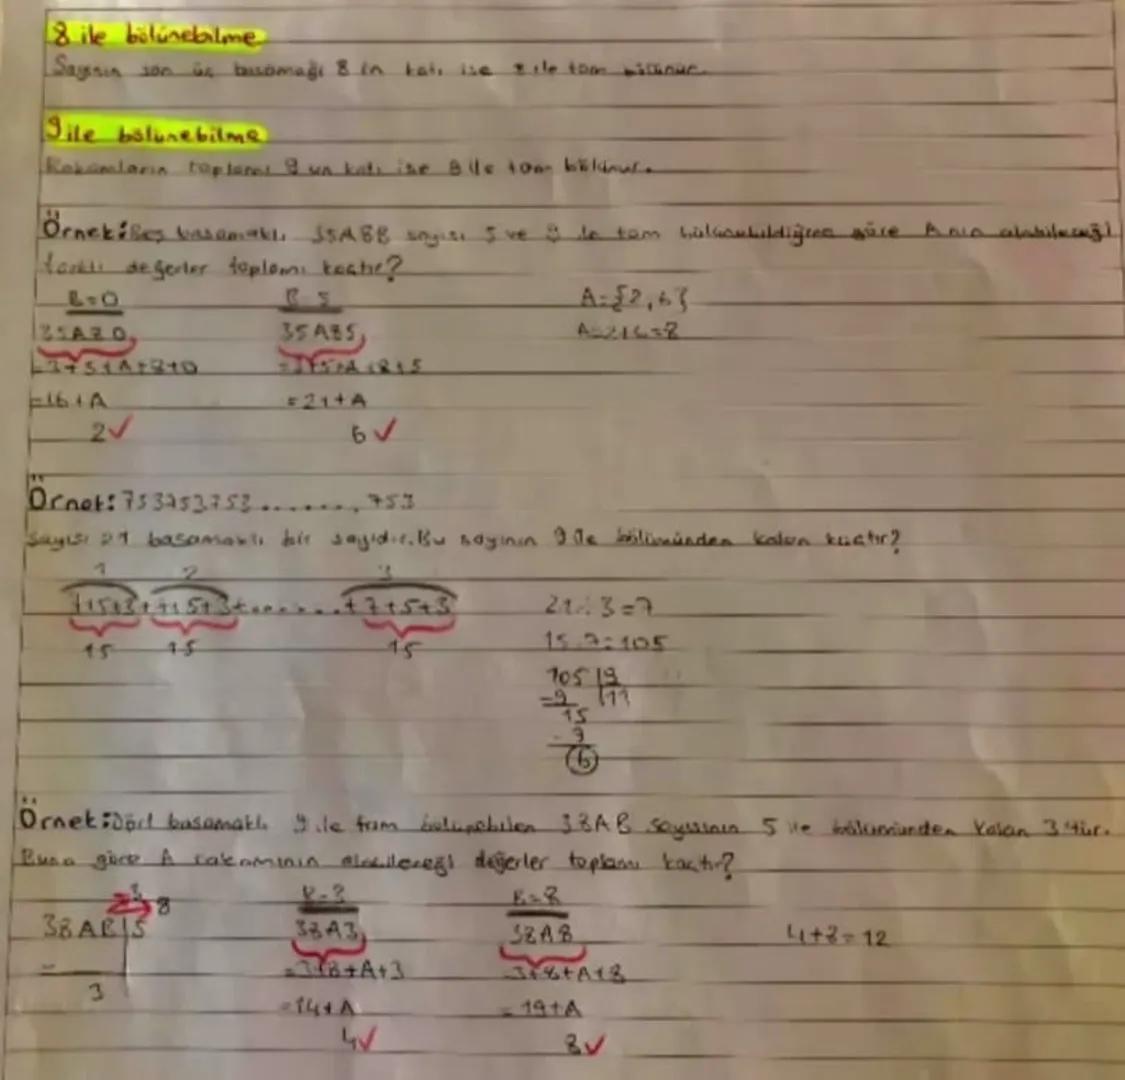 8 ile bölünebilme
Sayının son üç basamağı 8 in katı ise 8 ile tam bölünür.
9 ile bölünebilme
Rakamların toplamı 9 un katı ise 9 ile tam bölünür.
Örnek: Beş basamaklı 35A8B sayısı 5 ve 9 ile tam bölünebildiğine göre A nın alabileceği
farklı değerler toplamı kaçtır?
B=0 B=5 A={2,6}
35A80 35A85 A=2+6=8
=3+5+A+8+0 =3+5+A+8+5
=16+A =21+A
2✓ 6✓
Örnek: 753753753.......753
sayısı 21 basamaklı bir sayıdır. Bu sayının 9 ile bölümünden kalan kaçtır?
1 2 3
7+5+3+7+5+3+.......+7+5+3 21:3=7
15 15 15 15.7=105
105 9
-9 11
15
-9
6
Örnek: Dört basamaklı 9 ile tam bölünebilen 38AB sayısının 5 ile bölümünden kalan 3 tür.
Buna göre A rakamının alabileceği değerler toplamı kaçtır?
3 8 B=3 B=8
38AB 5 38A3 38A8 4+8=12
- =3+8+A+3 =3+8+A+8
3 =14+A =19+A
4✓ 8✓